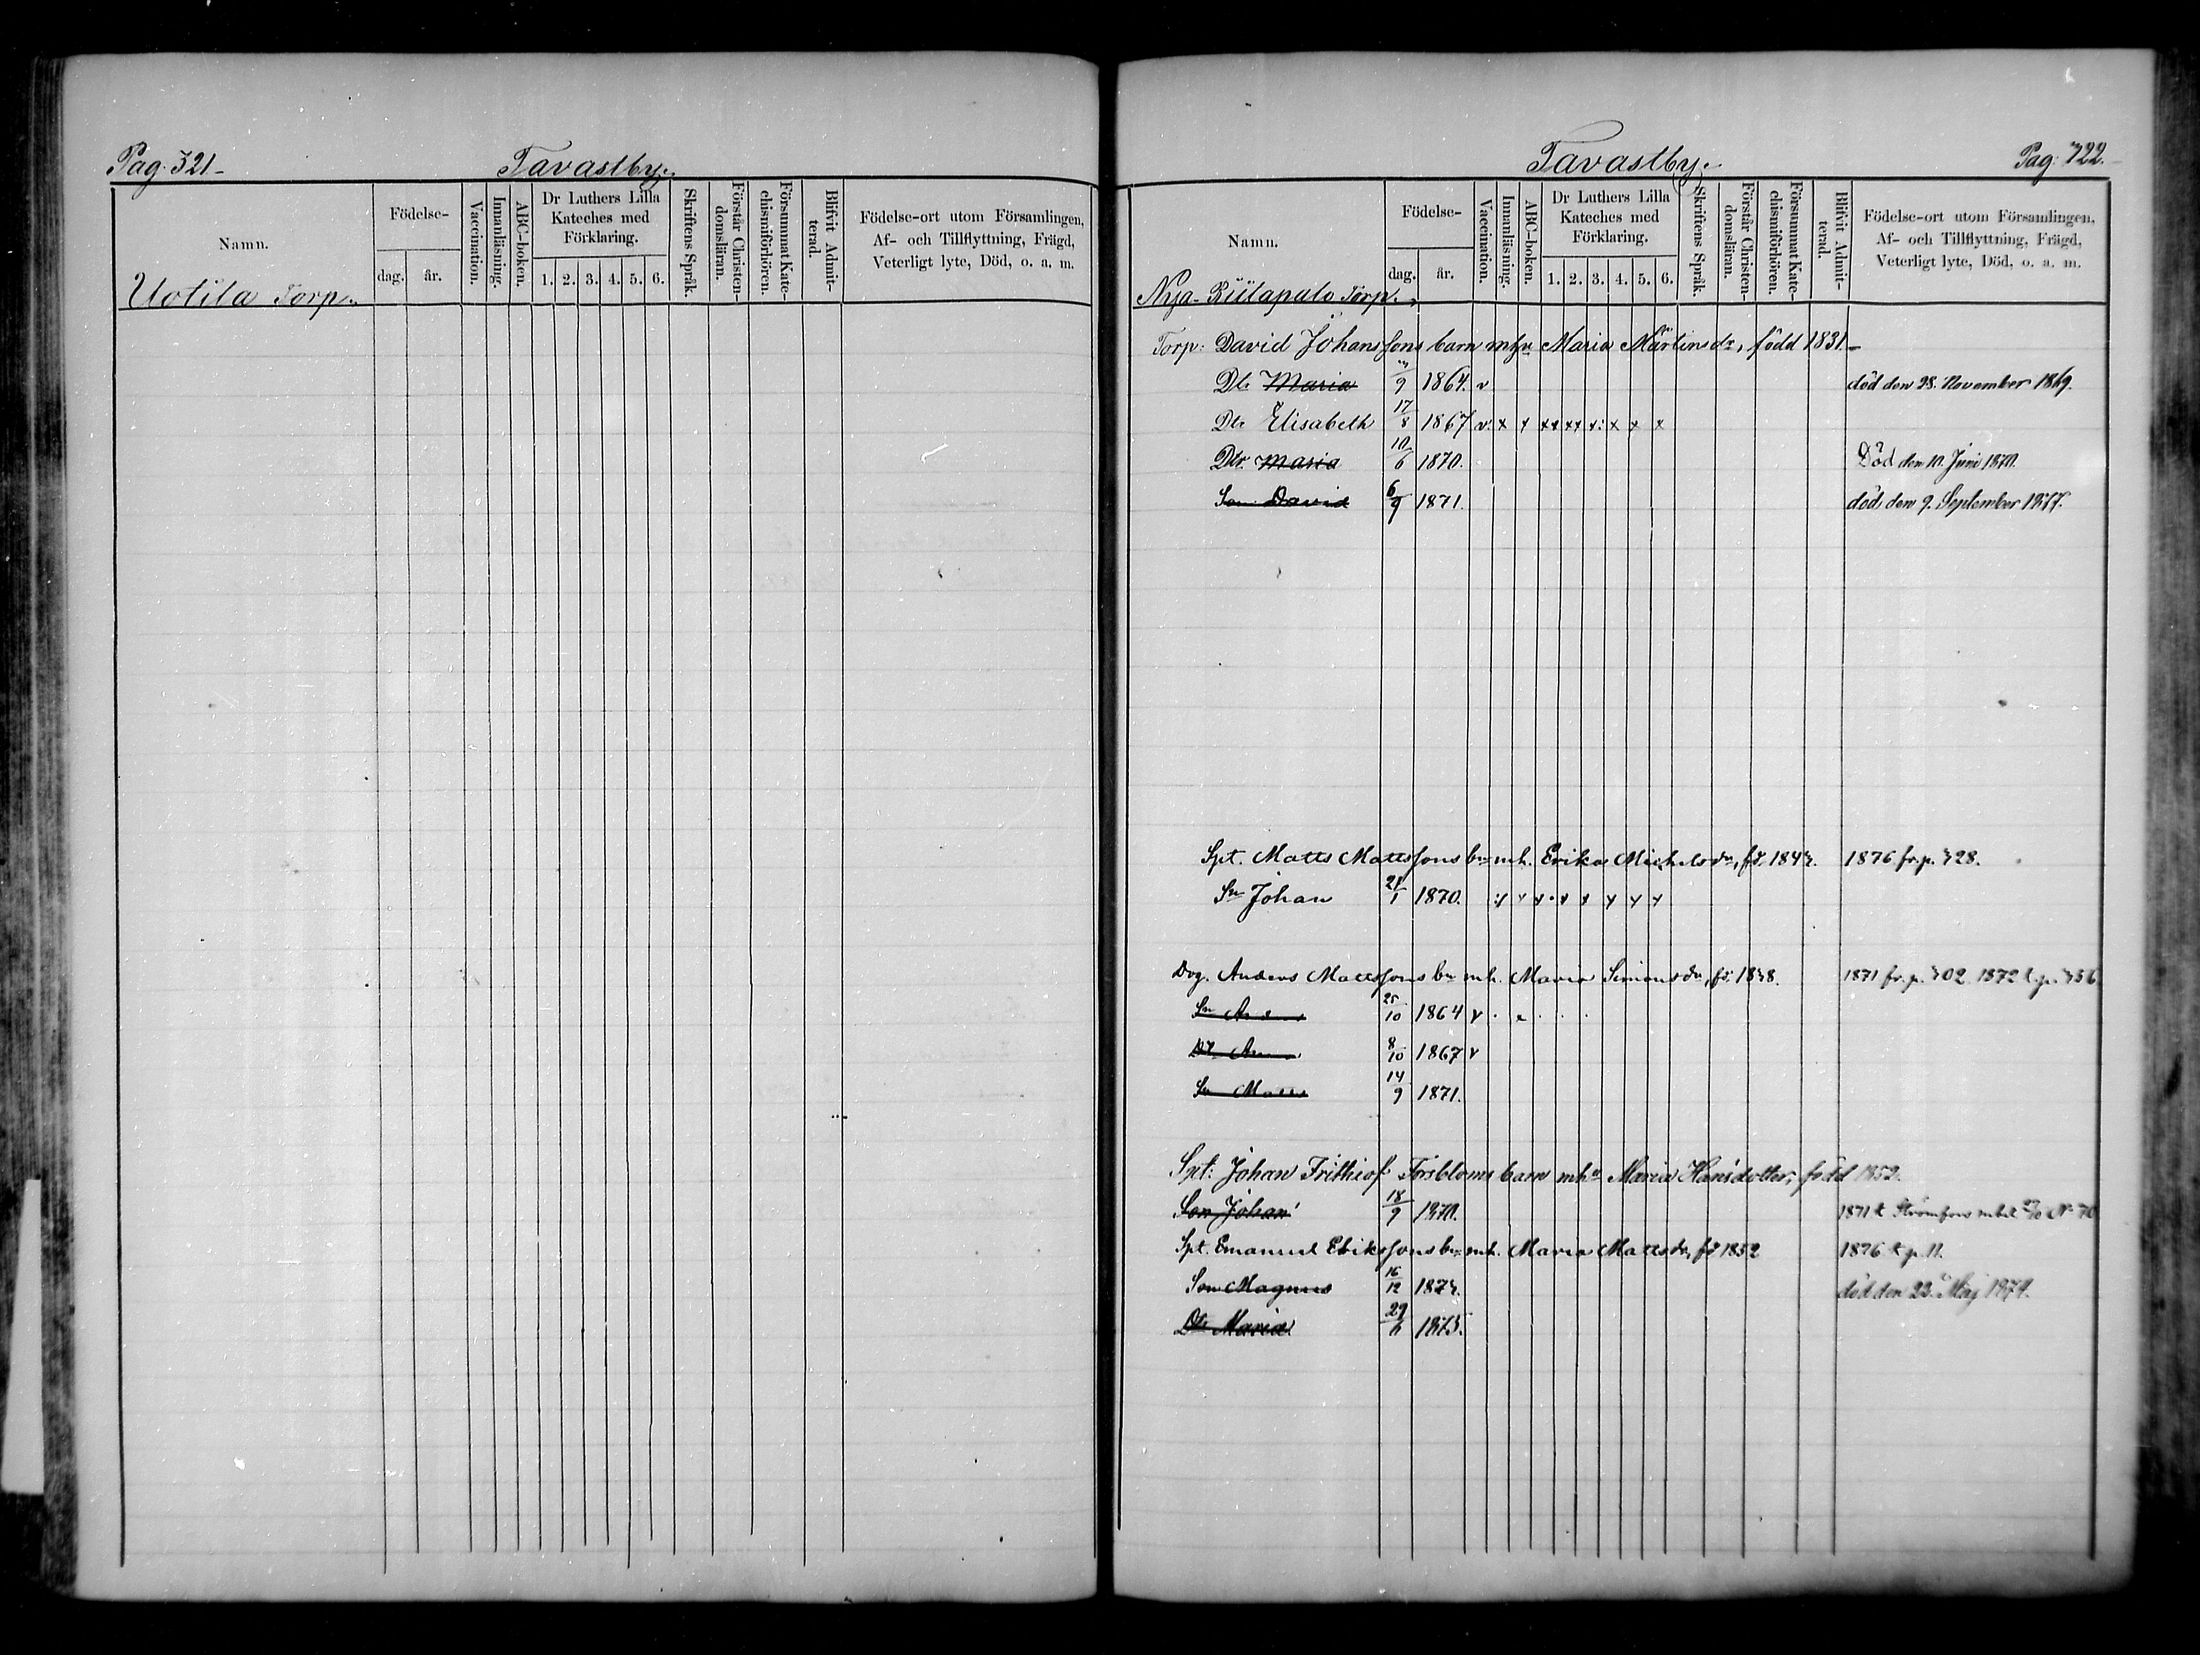 Pag. 321
Tavastby.
Namn.
Födelse-
dag.
år.
Vaccination.
Innanläsning.
ABC-boken.
Dr Luthers Lilla
Kateches med
Förklaring.
1. 2. 3. 4. 5. 6.
Skriftens Språk.
Förstår Christen-
domsläran.
Försummat Kate-
chismiförhören.
Blifvit Admit-
terad.
Födelse-ort utom Församlingen,
Af- och Tillflyttning, Frägd,
Veterligt lyte, Död, o. a. m.
Uotila Torp.
Tavastby.
Pag: 722.
Namn.
Födelse-
dag.
år.
Vaccination.
Innanläsning.
ABC-boken.
Dr Luthers Lilla
Kateches med
Förklaring.
1. 2. 3. 4. 5. 6.
Skriftens Språk.
Förstår Christen-
domsläran.
Försummat Kate-
chismiförhören.
Blifvit Admit-
terad.
Födelse-ort utom Församlingen,
Af- och Tillflyttning, Frägd,
Veterligt lyte, Död, o. a. m.
Nya Riilapalo Torp.
Torp: David Johanssons barn mhu Maria Mårtinsdr, född 1831
Dtr Maria 9 1864. v död den 28. November 1869.
Dtr Elisabeth 17/8 1867 v: x x xx xx x: x x x
Dtr. Maria 10/6 1870. Död den 10. Juni 1870.
Son David 6/9 1871. död den 9. September 1877.
Spt. Matts Mattssons bn mh. Erika Michelsdr, fd. 1847. 1876 fr. p. 728.
Sn Johan 21/1 1870.
Drg. Anders Mattssons bn mh. Maria Simonsdr, fd. 1838. 1871 fr. p. 702. 1872 t. p. 756
Sn 25/10 1864 v
Dr 8/10 1867 v
Sn Matts 14/9 1871.
Spt: Johan Frithiof Forsbloms barn mhu Maria Hansdotter, född 1852.
Son Johan 18/9 1870. 1871 t. Strömfors
Spt. Emanuel Erikssons bn mh. Maria Mattsdr, fd 1852 1876 t. p. 11.
Son Magnus 16/12 1873. död den 23. Maj 1874.
Dtr Maria 29/6 1875.